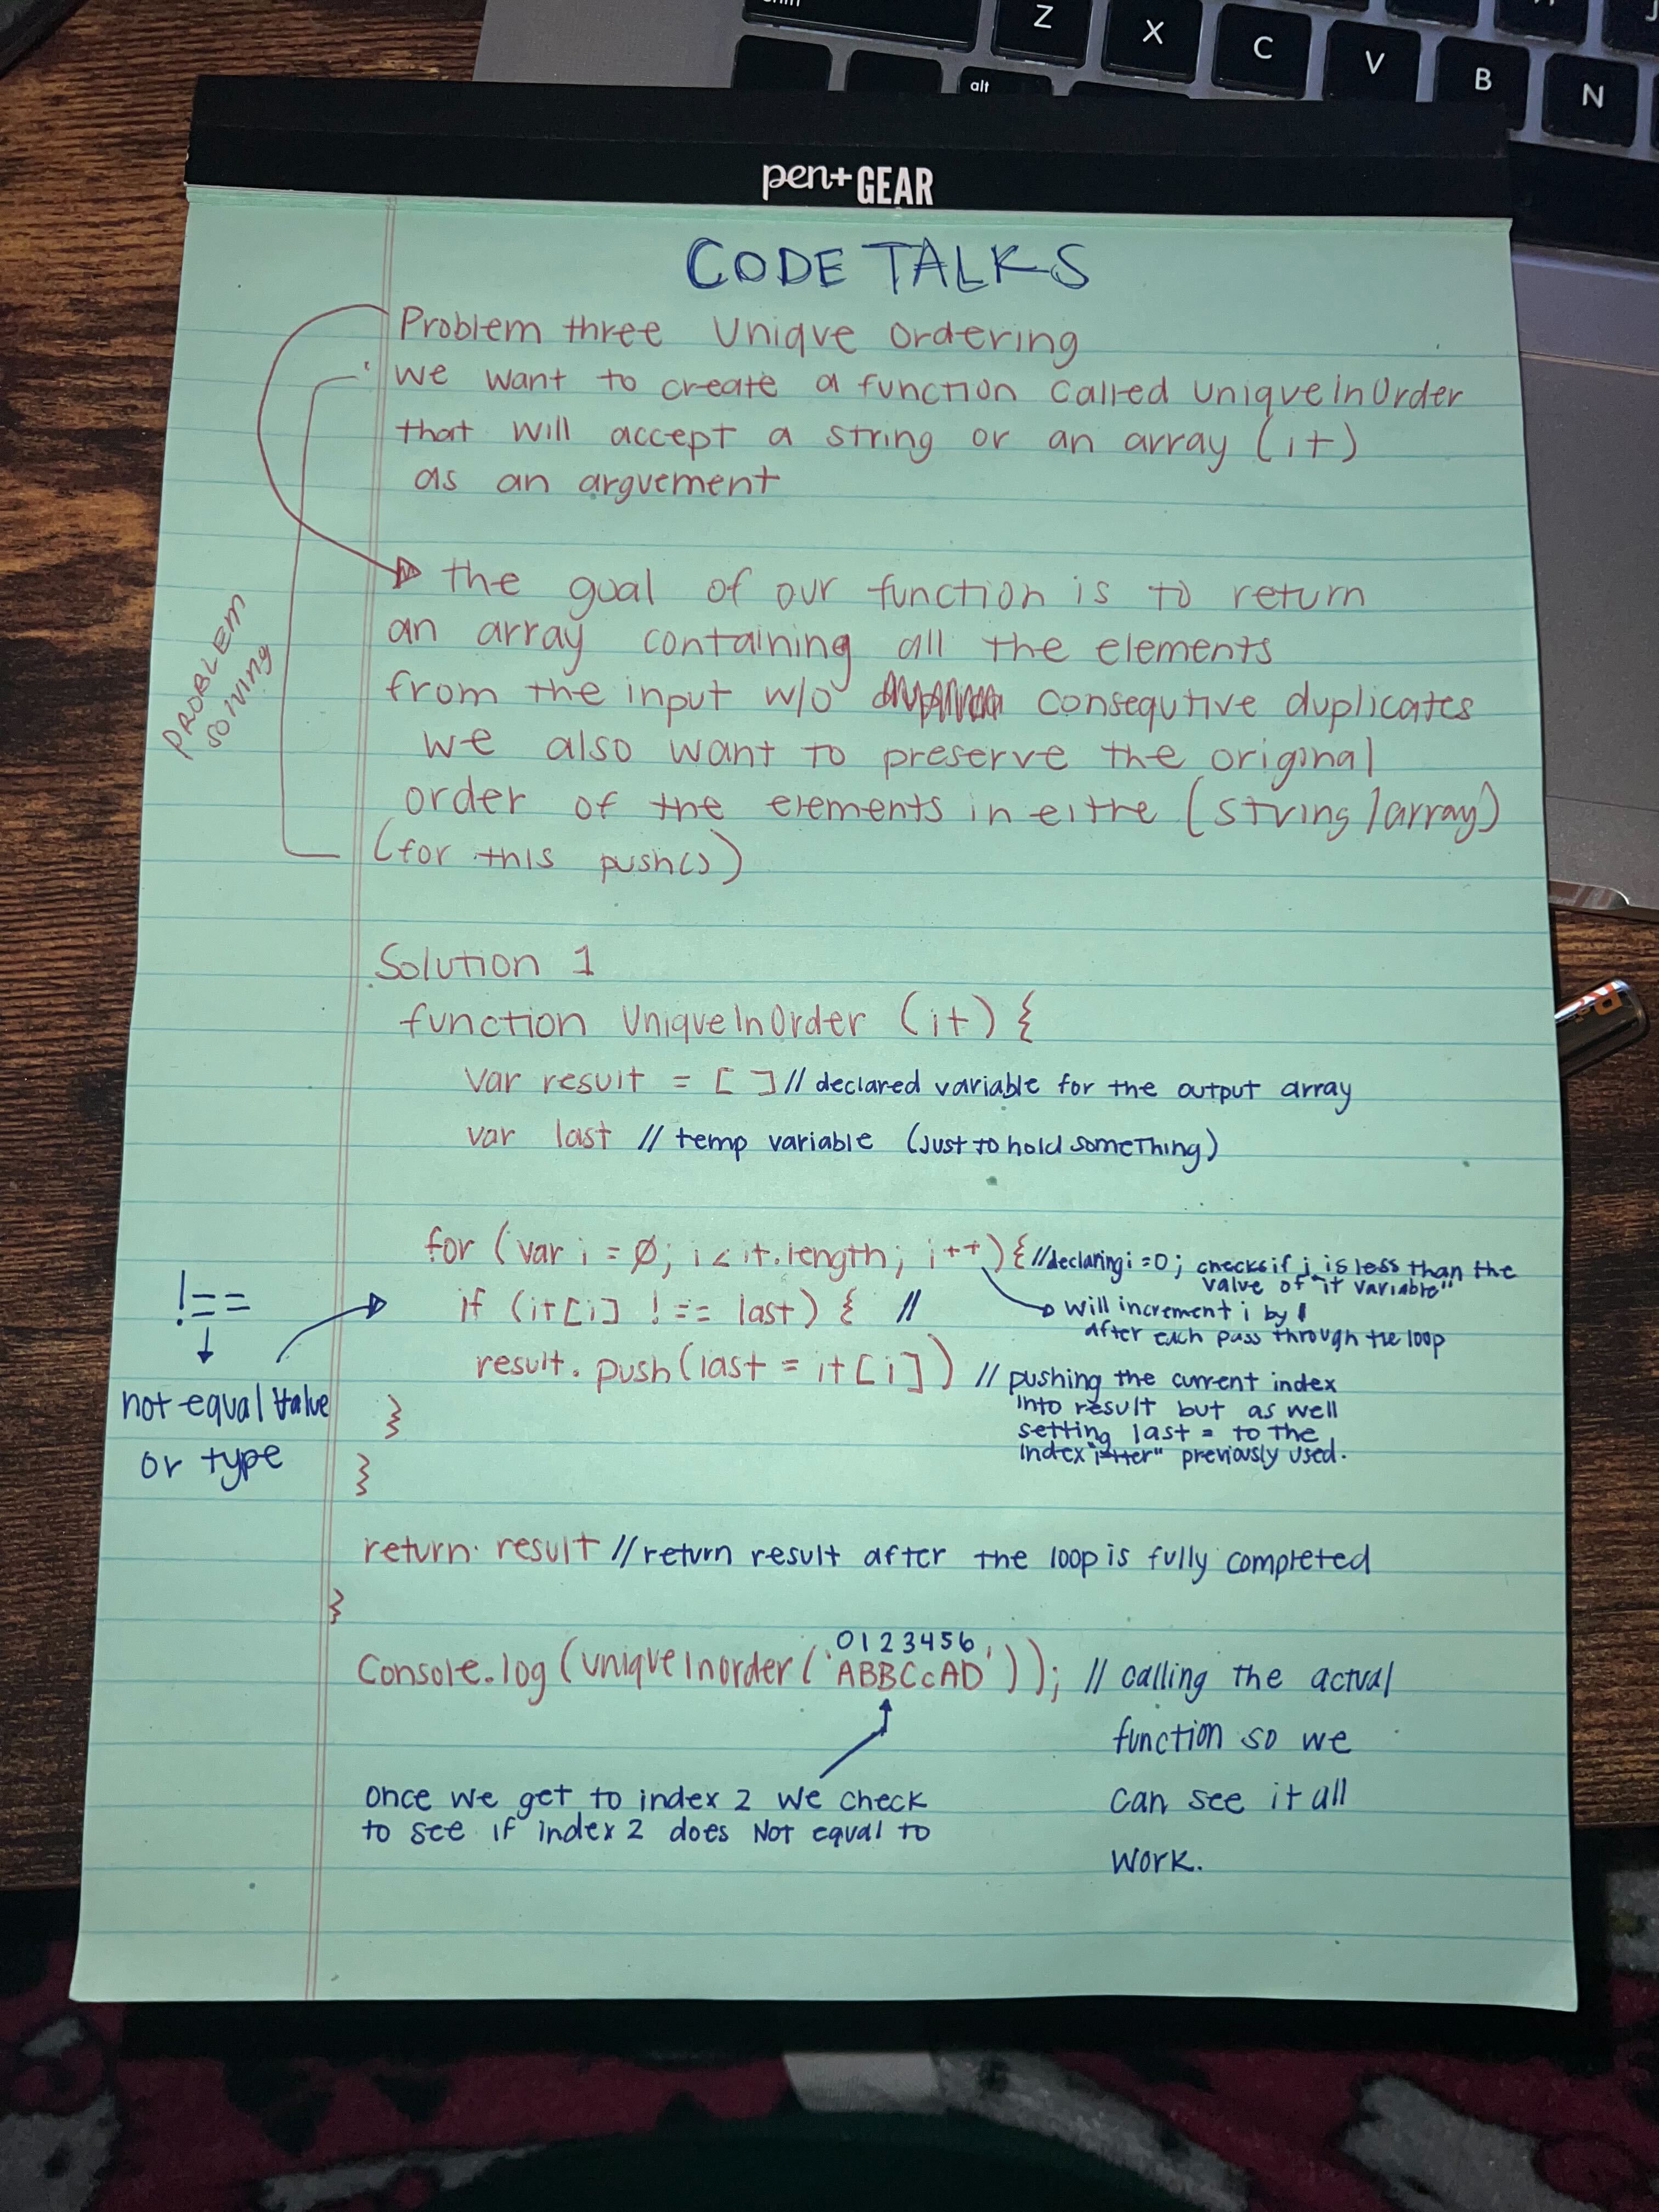 Z X C V B N
alt
pen+GEAR
CODE TALKS
Problem three Unique Ordering
We want to create a function called uniqueInOrder
that will accept a string or an array (it)
as an arguement
the goal of our function is to return
an array containing all the elements
from the input w/o consequtive duplicates
we also want to preserve the original
order of the elements in eithe (string/array)
(for this push())
PROBLEM
solving
Solution 1
function UniqueInOrder (it) {
var result = [ ] // declared variable for the output array
var last // temp variable (Just to hold something)
for (var i = 0; i < it.length; i++) { //declaring i = 0; checks if i is less than the
value of "it variable"
will increment i by 1
After each pass through the loop
if (it[i] !== last) { //
result.push(last = it[i]) // pushing the current index
into result but as well
setting last = to the
index "itter" previously used.
!==
not equal value
or type
}
}
return result // return result after the loop is fully completed
}
0123456
Console.log(uniqueInorder('ABBCcAD')); // calling the actual
function so we
can see it all
work.
once we get to index 2 we check
to see if index 2 does Not equal to